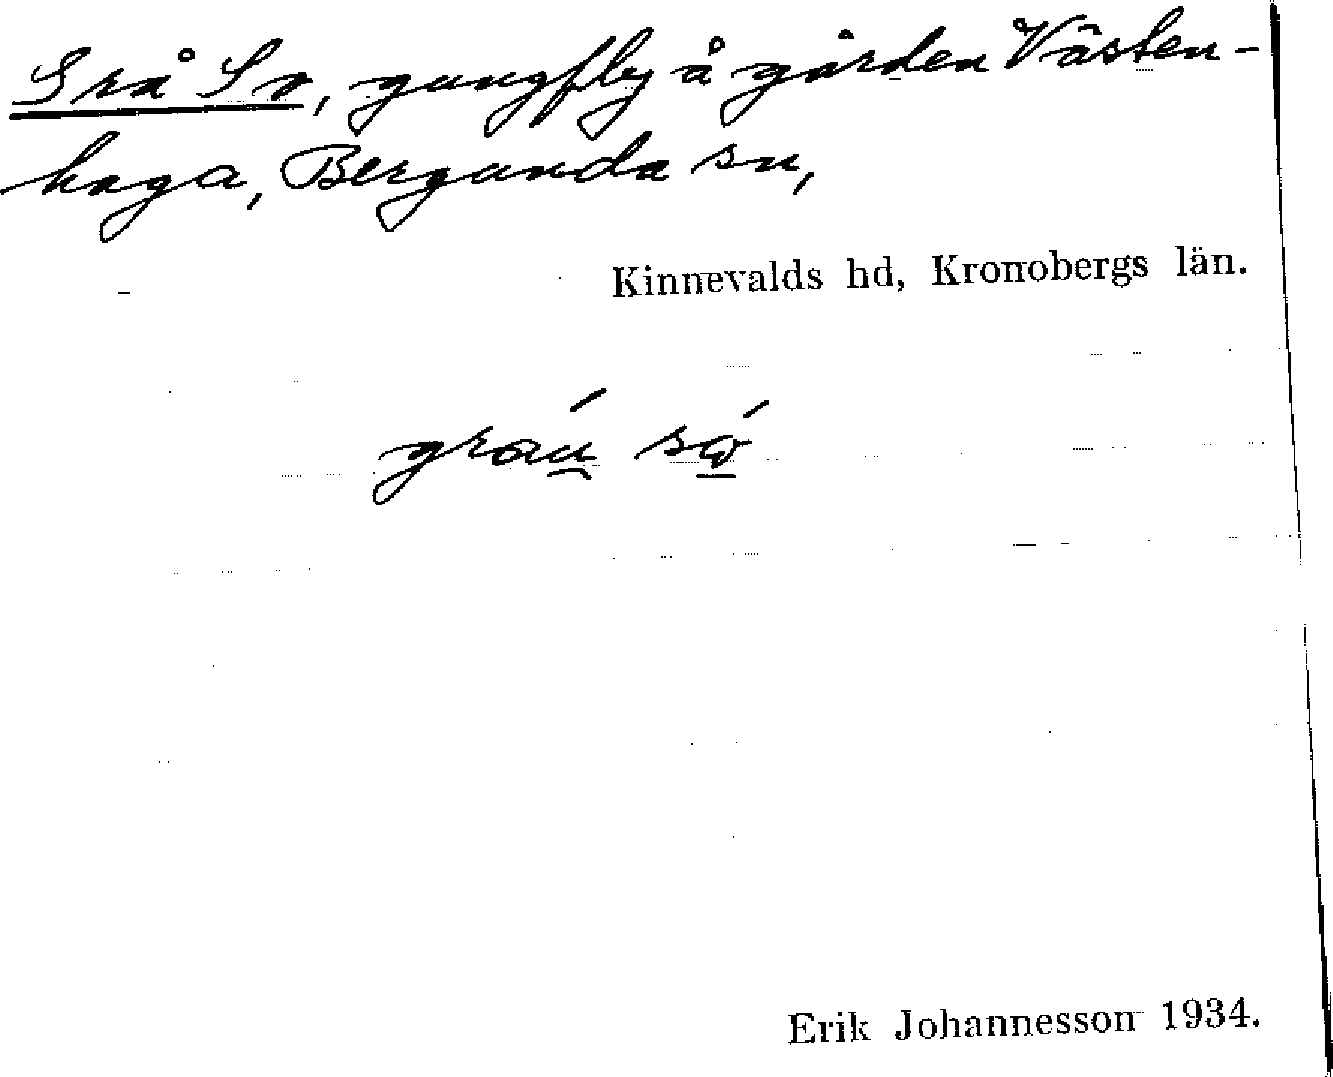 Grå So, gungfly å gården Västen-
haga, Bergunda sn,
Kinnevalds hd, Kronobergs län.
Erik Johannesson 1934.